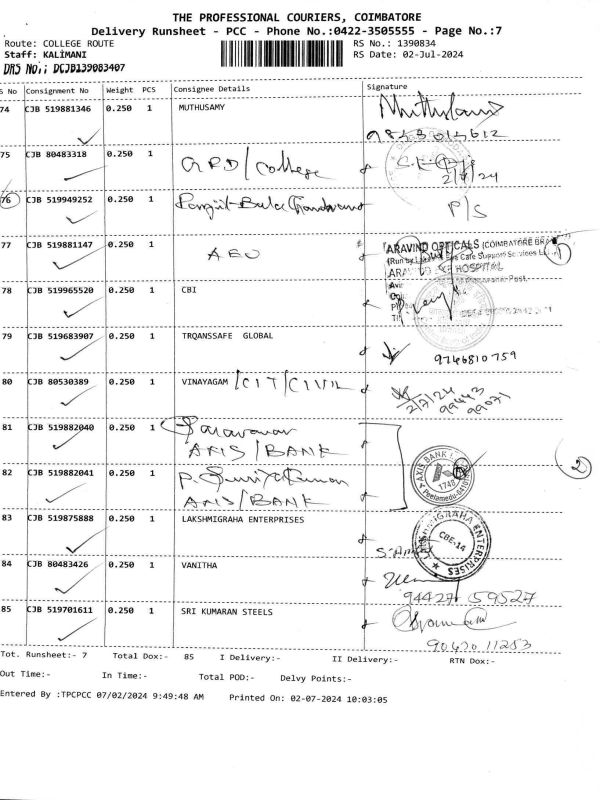 THE PROFESSIONAL COURIERS, COIMBATORE
Delivery Runsheet - PCC - Phone No.:0422-3505555 - Page No.:7
Route: COLLEGE ROUTE RS No.: 1390834
Staff: KALIMANI RS Date: 02-Jul-2024
DRS No.: DCJB139083407
S No Consignment No Weight PCS Consignee Details Signature
74 CJB 519881346 0.250 1 MUTHUSAMY
75 CJB 80483318 0.250 1 GRD/College
2/7/24
76 CJB 519949252 0.250 1 P/S
77 CJB 519881147 0.250 1 AEO
ARAVIND OPTICALS (COIMBATORE
HOSPITAL
1
78 CJB 519965520 0.250 1 CBI
79 CJB 519683907 0.250 1 TRQANSSAFE GLOBAL
9746810759
80 CJB 80530389 0.250 1 VINAYAGAM /CIT/CIVIL
2/7/24 99443
99071
81 CJB 519882040 0.250 1 Saravanan
AXIS/BANK
AXIS BANK
1748
2
82 CJB 519882041 0.250 1
AXIS/BANK
83 CJB 519875888 0.250 1 LAKSHMIGRAHA ENTERPRISES
CBE-14
ENTERPRISES
84 CJB 80483426 0.250 1 VANITHA
94427 59527
85 CJB 519701611 0.250 1 SRI KUMARAN STEELS
90430 11253
Tot. Runsheet:- 7 Total Dox:- 85 I Delivery:- II Delivery:- RTN Dox:-
Out Time:- In Time:- Total POD:- Delvy Points:-
Entered By :TPCPCC 07/02/2024 9:49:48 AM Printed On: 02-07-2024 10:03:05